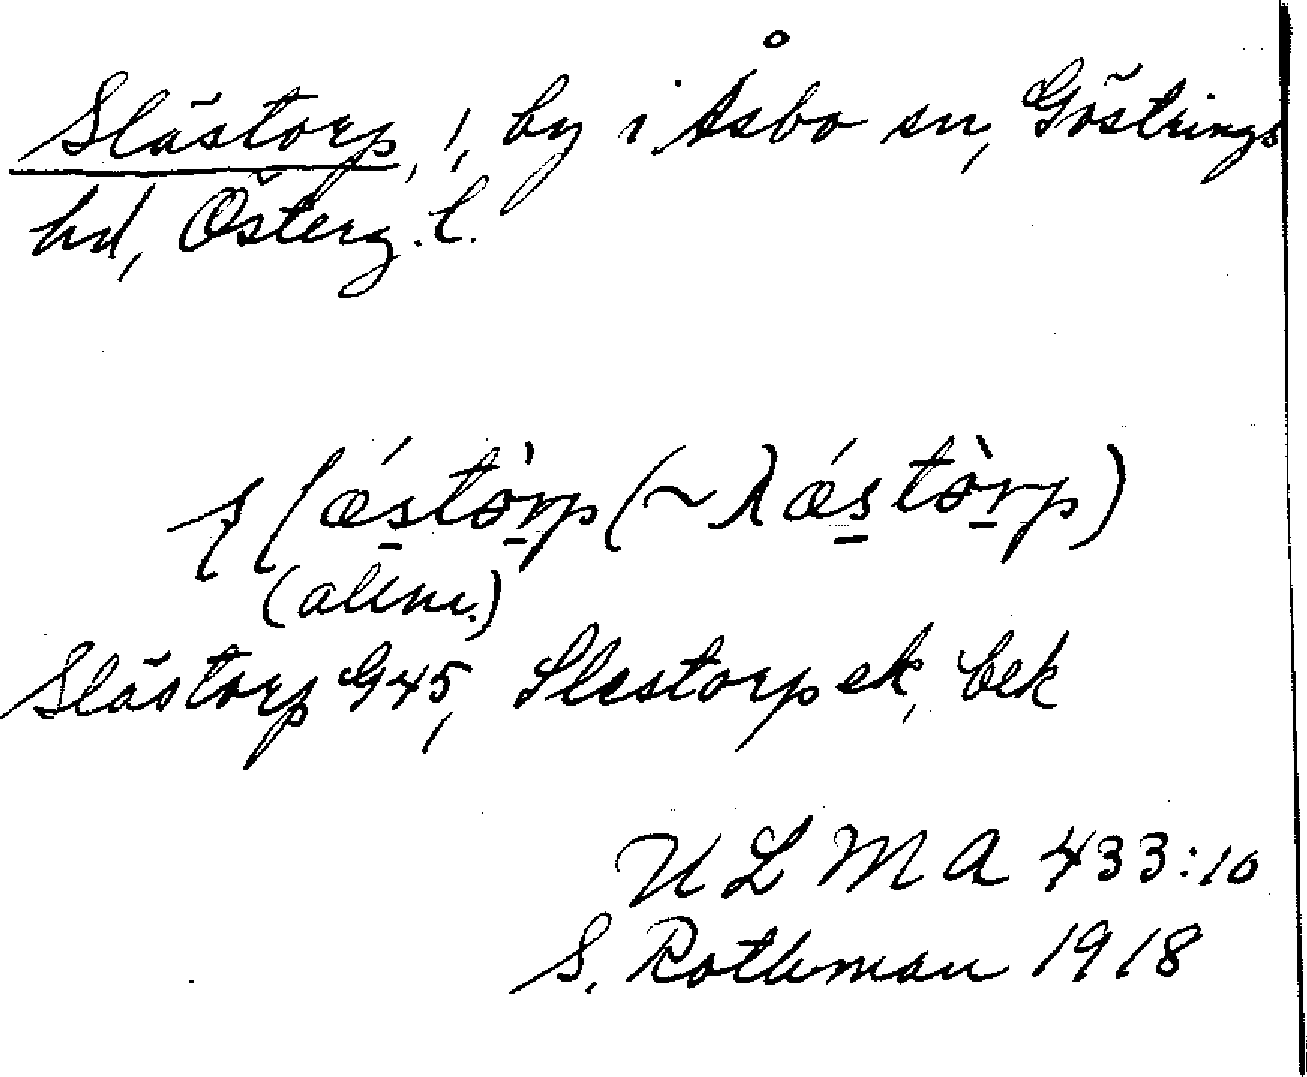 Slästorp, !, by i Åsbo sn, Göstrings
hd, Österg. l.
(allm.)
Slästorp G45, Slestorp ek, bek
ULMA 433:10
S. Rothman 1918